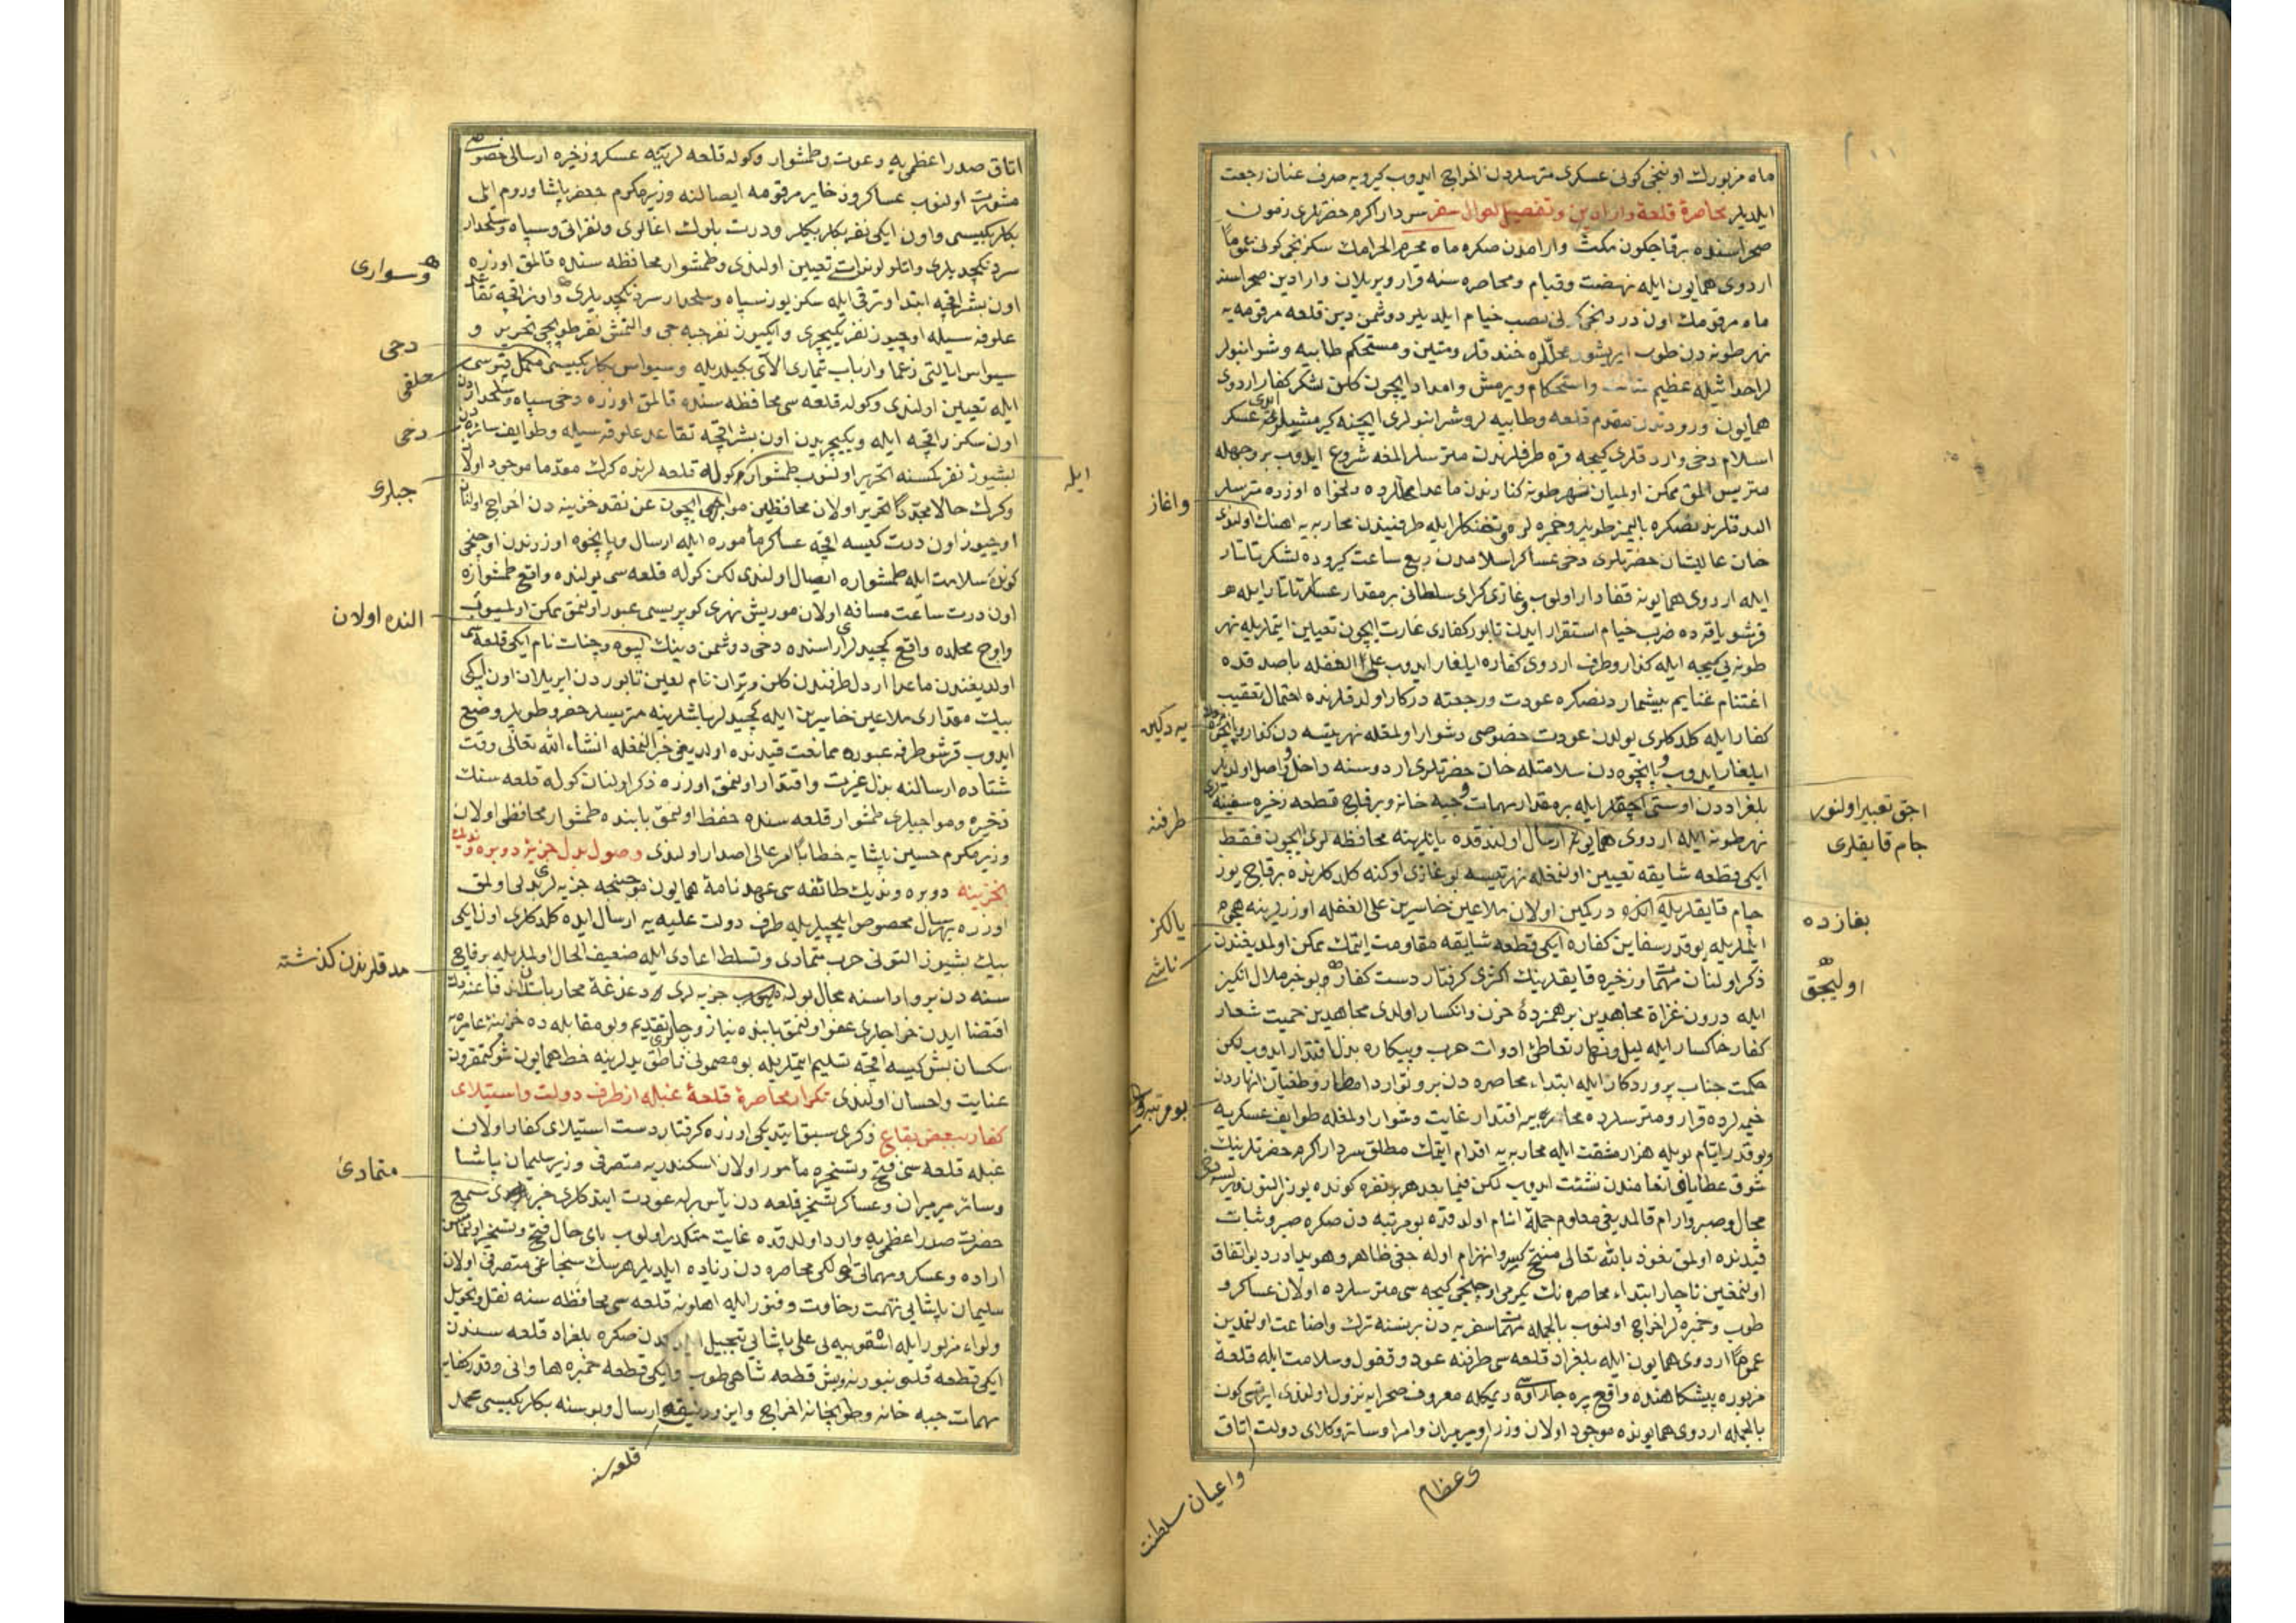 ماه مزبورك اوننجی كونی عسكری مترسلردن اخراج ایدوب كیرویه صرف عنان رجعت
ایلدیلر محاصرۀ قلعۀ وارادین وتفصیل احوال سفر سردار اكرم حضرتلری زمون
صحراسنده برقاچكون مكث وارامدن صكره ماه محرم الحرامك سكزنجی كونی عموماً
اردوی همایون ایله نهضت وقیام ومحاصره سنه قرار ویریلان وارادین صحراسنه
ماه مرقومك اون دردنجی كونی نصب خیام ایلدیلر دوشمن دین قلعه مرقومه یه
نهر طونه دن طوب ایریشور محللره خندقلر ومتین ومستحكم طابیه وشرانبولر
لر احداثیله عظیم متانت واستحكام ویرمش وامداد ایچون كلان لشكر كفار اردوی
همایون ورودندن مقدم قلعه وطابیه لر وشرانبولری ایچنه كیرمشیلر ایدی عسكر
اسلام دخی واردقلری كیجه قره طرفلرندن مترسلر المغه شروع ایدوب بر وجهله
متریس المق ممكن اولمیان نهر طونه كنارندن ماعدا محللرده دلخواه اوزره مترسلر
الدقلرندنصكره بالیمز طوپلر وخمبره لر وتفنكلر ایله طرفیندن محاربه یه اهنك اولندی
واغاز
خان عالیشان حضرتلری دخی عساكر اسلامدن ربع ساعت كیروده لشكر تاتار
ایله اردوی همایونه قفادار اولوب وغازی كرای سلطانی بر مقدار عسكر تاتار ایله
قرشو یاقه ده ضرب خیام استقرار ایدن تابور كفاری غارت ایچون تعیین ایتملریله نهر
طونه یی كیجه ایله كذار وطرف اردوی كفاره ایلغار ایدوب علی الغفله باصدقده
اغتنام غنایم بیشماردنصكره عودت ورجعته دركار اولدقلرنده احتمال تعقیب
كفار ایله كلدكلری یولدن عودت خصوصی دشوار اولمغله نهر تیسه دن كذار
یه دكین
ایلغار ایدوب وپانچوه دن سلامتله خان حضرتلری اردوسنه داخل وواصل اولدیلر
بلغراددن اوستی اچقلر ایله بر مقدار مهمات وجبه خانه وبرقاچ قطعه ذخیره سفینه
اچق تعبیر اولنور
جام قایقلری
طرفنه
نهر طونه ایله اردوی همایونه ارسال اولندقده یانلرینه محافظه لری ایچون فقط
ایكی قطعه شایقه تعیین اولنمغله نهر تیسه بوغازی اوكنه كلدكلرنده برقاچ یوز
جام قایقلریله انكره دركمین اولان ملاعین خاسرین علی الغفله اوزرلرینه هجوم
بغازده
یالكز
ایتملریله بوقدر سفاین كفاره ایكی قطعه شایقه مقاومت ایتمك ممكن اولمدیغندن
ناشی
ذكر اولنان مهمات وذخیره قایقلرینك اكثری كرفتار دست كفار وبو خبر ملال انكیز
اولیجق
ایله درون غزاة مجاهدین بر همزدۀ حزن وانكسار اولدی مجاهدین حمیت شعار
كفار خاكسار ایله لیل ونهار تعاطئ ادوات حرب وپیكاره بذل اقتدار ایدوب لكن
حكمت جناب پروردكار ایله ابتداء محاصره دن برو توارد امطار وطغیان انهاردن
خیمه لرده قرار ومترسلرده محاربه یه اقتدار غایت دشوار اولمغله طوایف عسكریه
بو مرتبه
وبوقدر ایام بویله هزار مشقت ایله محاربه یه اقدام ایتمك مطلق سردار اكرم حضرتلرینك
شوق عطایا وانعامندن نشئت ایدوب لكن فیما بعد هر بر نفره كونده یوز التون ویرلسه
مجال وصبر وارام قالمدیغی معلوم جملۀ انام اولدقده بو مرتبه دن صكره صبر وثبات
قیدنده اولمق نعوذ بالله تعالی منتج كسر وانهزام اوله جغی ظاهر وهویدا دردیو اتفاق
اولنمغین ناچار ابتداء محاصره نك یكرمی اوچنجی كیجه سی مترسلرده اولان عساكر و
طوب وخمبره لر اخراج اولنوب بالجمله مهمات سفریه دن بر نسنه ترك واضاعت اولنمدین
عموماً اردوی همایون ایله بلغراد قلعه سی طرفنه عود وقفول وسلامت ایله قلعۀ
مزبوره پیشكاهنده واقع یره جار اوه سی دیمكله معروف صحرایه نزول اولندی ایرتسی كون
بالجمله اردوی همایونده موجود اولان وزرا ومیرمیران وامرا وسائر وكلای دولت اتاق
وعظام
واعیان سلطنت
اتاق صدر اعظمی یه دعوت وطمشوار وكوله قلعه لرینه عسكر وذخیره ارسالی خصوصی
مشورت اولنوب عساكر وذخایر مرقومه ایصالنه وزیر مكرم جعفر پاشا وروم ایلی
بكلربكیسی واون ایكی نفر بكلربكیلر ودرت بلوك اغالری ونفراتی وسپاه وسلحدار
سردنكچدیلری واتلو لوندات تعیین اولندی وطمشوار محافظه سنده قالمق اوزره
وسواری
اون بشر اقچه ابتدا وترقی ایله سكز یوز سپاه وسلحدار سردنكچدیلری واونر اقچه تقاعد
علوفه سیله اوچیوز نفر یكیچری وایكییوز نفر جبه جی والتمش نفر طوپچی تحریر و
دخی
سیواس ایالتی زعما وارباب تیماری الای بكیلریله وسیواس بكلربكیسی مكمل قپوسی
خلقی
ایله تعیین اولندی وكوله قلعه سی محافظه سنده قالمق اوزره دخی سپاه وسلحداردن
اون سكزر اقچه ایله ویكیچریدن اون بشر اقچه تقاعد علوفه سیله وطوایف سائره دن
دخی
بشیوز نفر كمسنه تحریر اولنوب طمشوار وكوله قلعه لرنده كرك مقدما موجود اولان
ایله
جبلری
وكرك حالا مجدداً تحریر اولان محافظین مواجبی ایچون عن نقد خزینه دن اخراج اولنان
اوچیوز اون درت كیسه اقچه عساكر مأموره ایله ارسال وپانچوه اوزرندن اوچنجی
كونده سلامت ایله طمشواره ایصال اولندی لكن كوله قلعه سی یولنده واقع طمشواره
اون درت ساعت مسافه اولان موریش نهری كوپریسی عبور اولنمق ممكن اولمیوب
النده اولان
واوچ محلده واقع كچیدلر اراسنده دخی دوشمن دینك لیپوه وچنات نام ایكی قلعه سی
اولدیغندن ماعدا اردل طرفندن كلان وتران نام لعین تابوردن ایریلان اون ایكی
بیك مقداری ملاعین خاسرین ایله كچیدلر باشلرینه متریسلر حفر وطوپلر وضع
ایدوب قرشو طرفه عبوره ممانعت قیدنده اولدیغی خبر النمغله انشاء الله تعالی وقت
شتاده ارسالنه بذل عزیمت واقتدار اولنمق اوزره ذكر اولنان كوله قلعه سنك
ذخیره ومواجبلری طمشوار قلعه سنده حفظ اولنمق بابنده طمشوار محافظی اولان
وزیر مكرم حسین پاشایه خطاباً امر عالی اصدار اولندی وصول بدل جزیۀ دوبره ونديك
بخزینه دوبره وندیك طائفه سی عهدنامۀ همایون موجبنجه جزیه لری بدلی اولمق
اوزره بهر سال مخصوص ایلچیلریله طرف دولت علیه یه ارسال ایده كلدكلری اون ایكی
بیك بشیوز التونی حرب متمادی وتسلط اعادی ایله ضعیف الحال اولملریله برقاچ
مدقلرندن كذشته
سنه دن برو اداسنه مجال بوله میوب جزیه لری دغدغۀ محارباتدن اندفاعندنك
اقتضا ایدن خراجلری عفو اولنمق بابنده نیاز ورجالر تقدیم وبو مقابله ده خزینۀ عامره یه
سكسان بش كیسه اقچه تسلیم ایتملریله بو مضمونی ناطق یدلرینه خط همایون شوكتمقرون
عنایت واحسان اولندی تكرار محاصرۀ قلعۀ غبله از طرف دولت واستیلای
كفار ببعض بقاع ذكری سبق ایتدیكی اوزره كرفتار دست استیلای كفار اولان
غبله قلعه سی فتح وتسخیره مأمور اولان اسكندریه متصرفی وزیر سلیمان پاشا
متمادئ
وسائر میرمیران وعساكر تسخیر قلعه دن یأس برله عودت ایتدكلری خبری سمع
حضرت صدر اعظمی یه وارد اولدقده غایت متكدر اولوب بای حال فتح وتسخیر اولنماسن
اراده وعسكر ومهماتی اولكی محاصره دن زیاده ایلدیلر هرسك سنجاغی متصرفی اولان
سلیمان پاشایی تهمت رخاوت وفتور ایله اهلونه قلعه سی محافظه سنه نقل وتحویل
ولواء مزبور ایله اشقوبیه لی علی پاشایی تبجیل ایلدكدن صكره بلغراد قلعه سندن
ایكی قطعه قلعه نبورنه وبش قطعه شاهی طوب وایكی قطعه خمبره ها وانی وقدر كفایه
مهمات جبه خانه وطوپخانه اخراج وایزورنیقه ارسال وبوسنه بكلربكیسی محمد
قلعه سنه